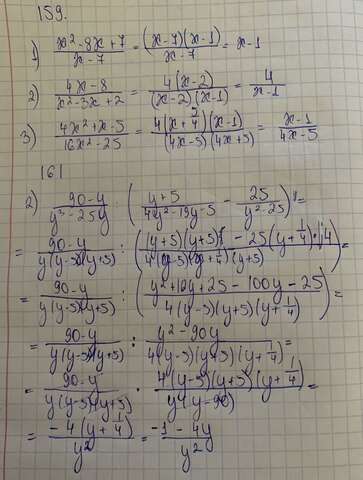 159.
1) \frac{x^2-8x+7}{x-7} = \frac{(x-7)(x-1)}{x-7} = x-1
2) \frac{4x-8}{x^2-3x+2} = \frac{4(x-2)}{(x-2)(x-1)} = \frac{4}{x-1}
3) \frac{4x^2+x-5}{16x^2-25} = \frac{4(x+\frac{5}{4})(x-1)}{(4x-5)(4x+5)} = \frac{x-1}{4x-5}
161
2) \frac{90-y}{y^3-25y} : (\frac{y+5}{4y^2-19y-5} - \frac{25}{y^2-25}) =
= \frac{90-y}{y(y-5)(y+5)} : (\frac{(y+5)(y+5) - 25(y+\frac{1}{4}) \cdot 4}{4(y-5)(y+\frac{1}{4})(y+5)}) =
= \frac{90-y}{y(y-5)(y+5)} : (\frac{y^2+10y+25-100y-25}{4(y-5)(y+5)(y+\frac{1}{4})}) =
= \frac{90-y}{y(y-5)(y+5)} : \frac{y^2-90y}{4(y-5)(y+5)(y+\frac{1}{4})} =
= \frac{90-y}{y(y-5)(y+5)} \cdot \frac{4(y-5)(y+5)(y+\frac{1}{4})}{y(y-90)} =
= \frac{-4(y+\frac{1}{4})}{y^2} = \frac{-1-4y}{y^2}